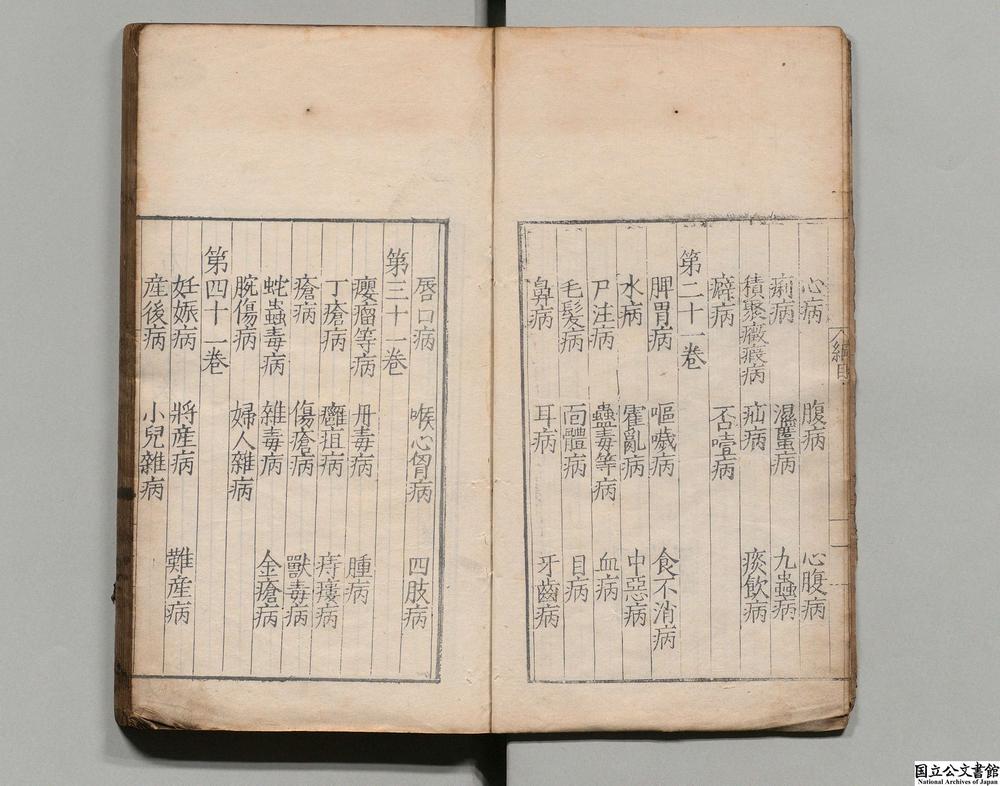 心病 腹病 心腹病
痢病 濕䘌病 九蟲病
積聚癥瘕病 疝病 痰飲病
癖病 否噎病
第二十一卷
脾胃病 嘔噦病 食不消病
水病 霍亂病 中惡病
尸注病 蠱毒等病 血病
毛髮病 面體病 目病
鼻病 耳病 牙齒病
唇口病 喉心胷病 四肢病
第三十一卷
癭瘤等病 丹毒病 腫病
丁瘡病 癰疽病 痔瘻病
瘡病 傷瘡病 獸毒病
蛇蟲毒病 雜毒病 金瘡病
腕傷病 婦人雜病
第四十一卷
妊娠病 將產病 難產病
産後病 小兒雜病
綱目
国立公文書館
National Archives of Japan